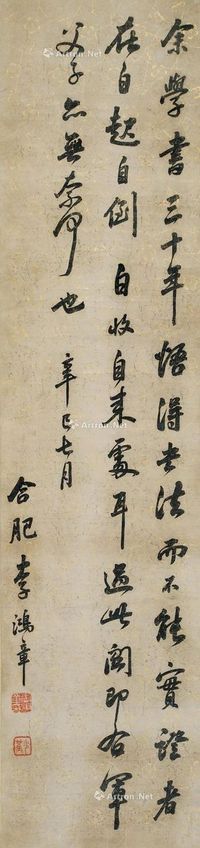 余學書三十年悟得書法而不能實證者
在自起自倒自收自束處耳過此關即右軍
父子亦無奈何也
辛巳七月
合肥李鴻章
Artron.Net